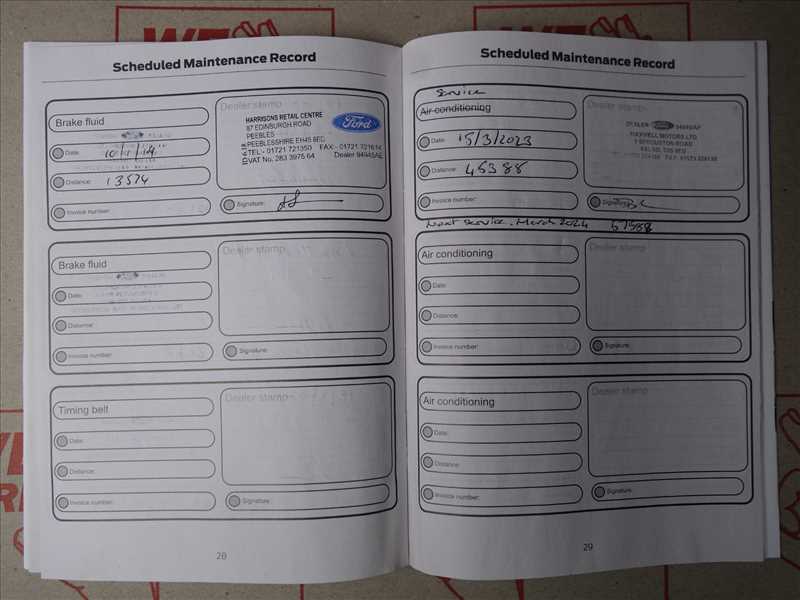 Scheduled Maintenance Record
Brake fluid
Date: 10/1/14
Distance: 13574
Invoice number:
Dealer stamp
HARRISONS RETAIL CENTRE
87 EDINBURGH ROAD
PEEBLES
PEEBLESSHIRE EH45 8EC
TEL:- 01721 721350 FAX:- 01721 721614
VAT No. 283 3975 64 Dealer
Ford
Signature:
Brake fluid
Date:
Distance:
Invoice number:
Dealer stamp
Signature:
Timing belt
Date:
Distance:
Invoice number:
Dealer stamp
Signature:
Scheduled Maintenance Record
Service
Air conditioning
Date: 15/3/2023
Distance: 45388
Invoice number:
Dealer stamp
DEALER Ford
MAXWELL MOTORS LTD
Signature:
Next service. March 2024 57388
Air conditioning
Date:
Distance:
Invoice number:
Dealer stamp
Signature:
Air conditioning
Date:
Distance:
Invoice number:
Dealer stamp
Signature:
29